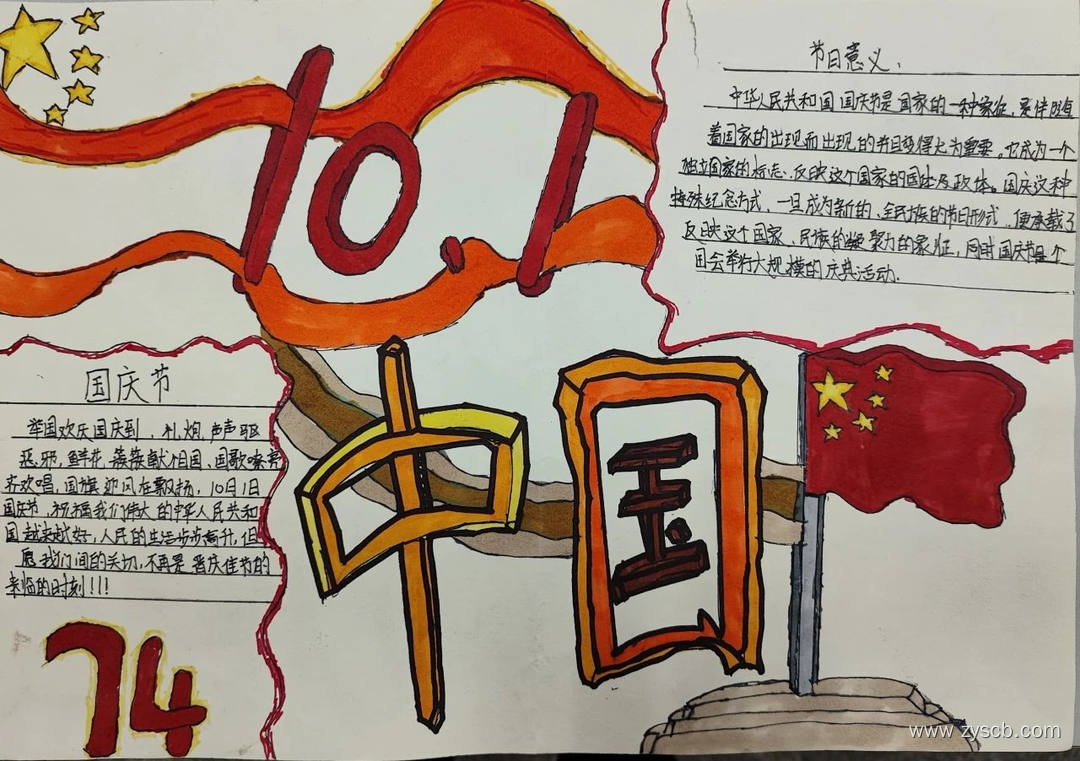 10.1
节日意义.
中华人民共和国国庆节是国家的一种象征,是伴随
着国家的出现而出现的并且变得尤为重要。它成为一个
独立国家的标志、反映这个国家的国体及政体。国庆这种
特殊纪念方式,一旦成为新的、全民族的节日形式,便承载了
反映这个国家、民族的凝聚力的象征,同时国庆节每个
国会举行大规模的庆典活动.
国庆节
举国欢庆国庆到,礼炮声声
恶邪,鲜花簇簇献祖国、国歌嘹亮
齐欢唱,国旗迎风在飘扬,10月1日
国庆节,祝福我们伟大的中华人民共和
国越来越好,人民的生活步步高升,但
愿我们间的关切,不再是普庆佳节的
来临的时刻!!!
中国
74
www.zyscb.com